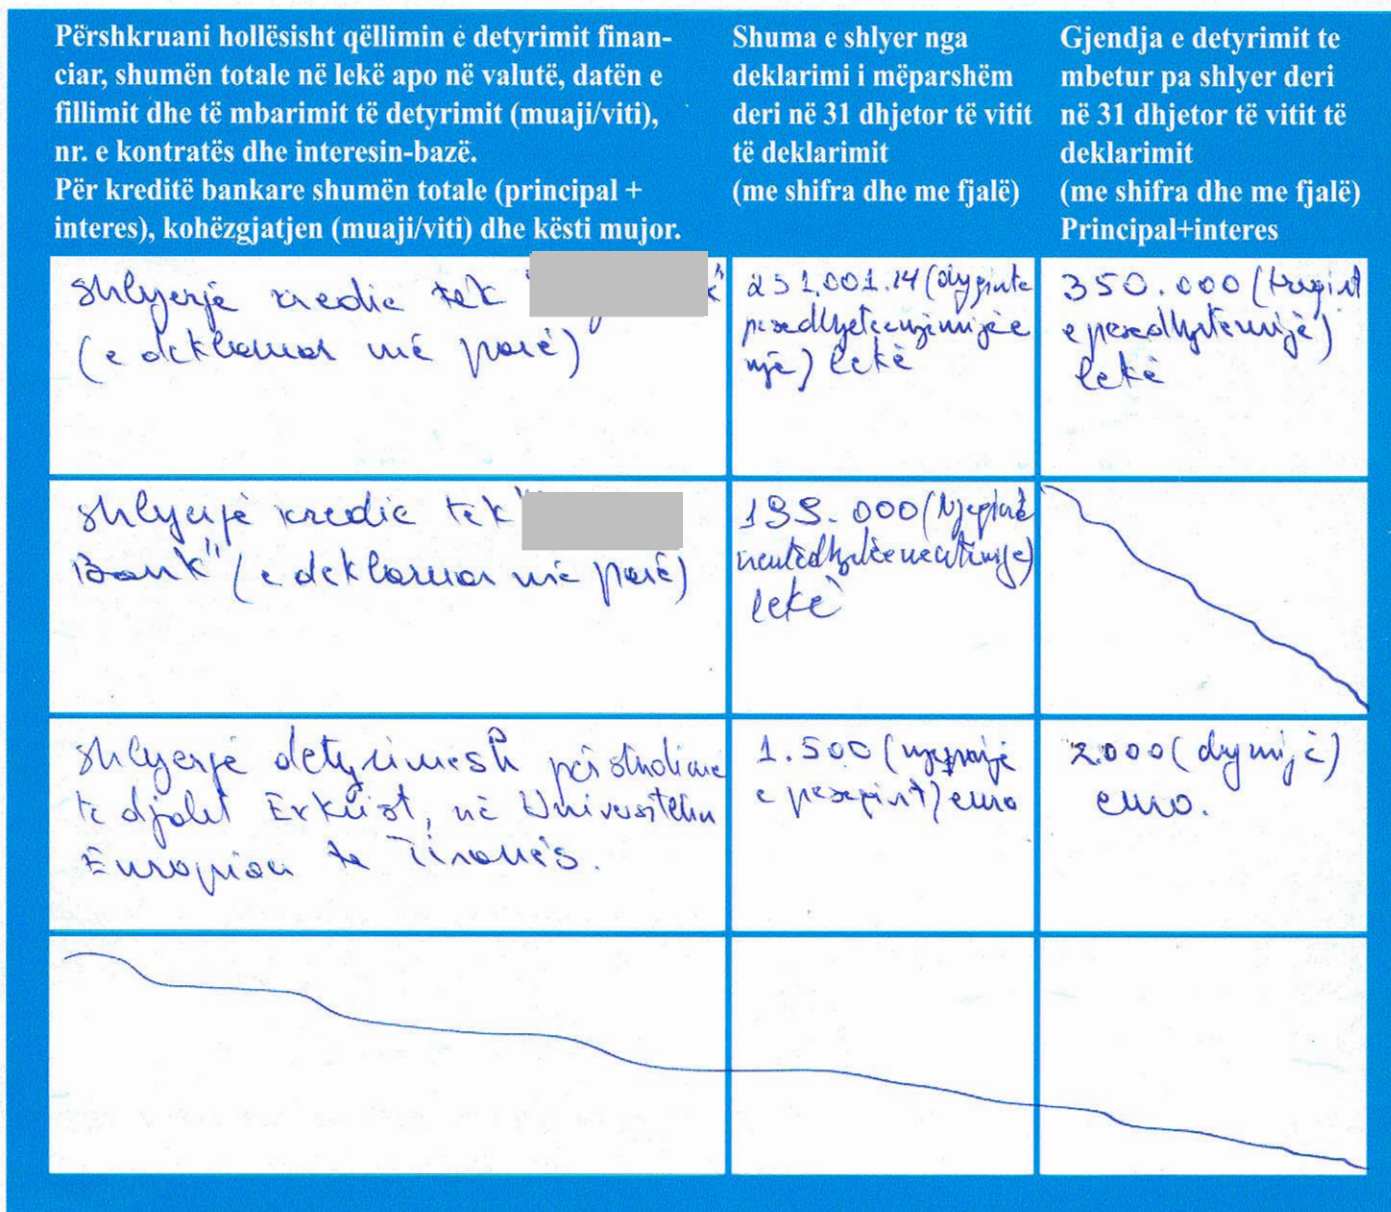 Përshkruani hollësisht qëllimin e detyrimit finan-
ciar, shumën totale në lekë apo në valutë, datën e
fillimit dhe të mbarimit të detyrimit (muaji/viti),
nr. e kontratës dhe interesin-bazë.
Për kreditë bankare shumën totale (principal +
interes), kohëzgjatjen (muaji/viti) dhe kësti mujor.
Shuma e shlyer nga
deklarimi i mëparshëm
deri në 31 dhjetor të vitit
të deklarimit
(me shifra dhe me fjalë)
Gjendja e detyrimit te
mbetur pa shlyer deri
në 31 dhjetor të vitit të
deklarimit
(me shifra dhe me fjalë)
Principal+interes
Shlyerje kredie tek "
(e deklaruar më parë)
251.001.14 (dyqinte
pesedhjeteenjëmijëe
një) lekë
350.000 (treqint
e pesedhjetemijë)
lekë
Shlyerje kredie tek "
Bank" (e deklaruar më parë)
199.000 (Njeqinde
nentëdhjetëenentëmije)
lekë
Shlyerje detyrimesh për studime
te djalit Erkiist, në Universitetin
Europian te Tiranës.
1.500 (njëmijë
e peseqint) euro
2.000 (dy mijë)
euro.